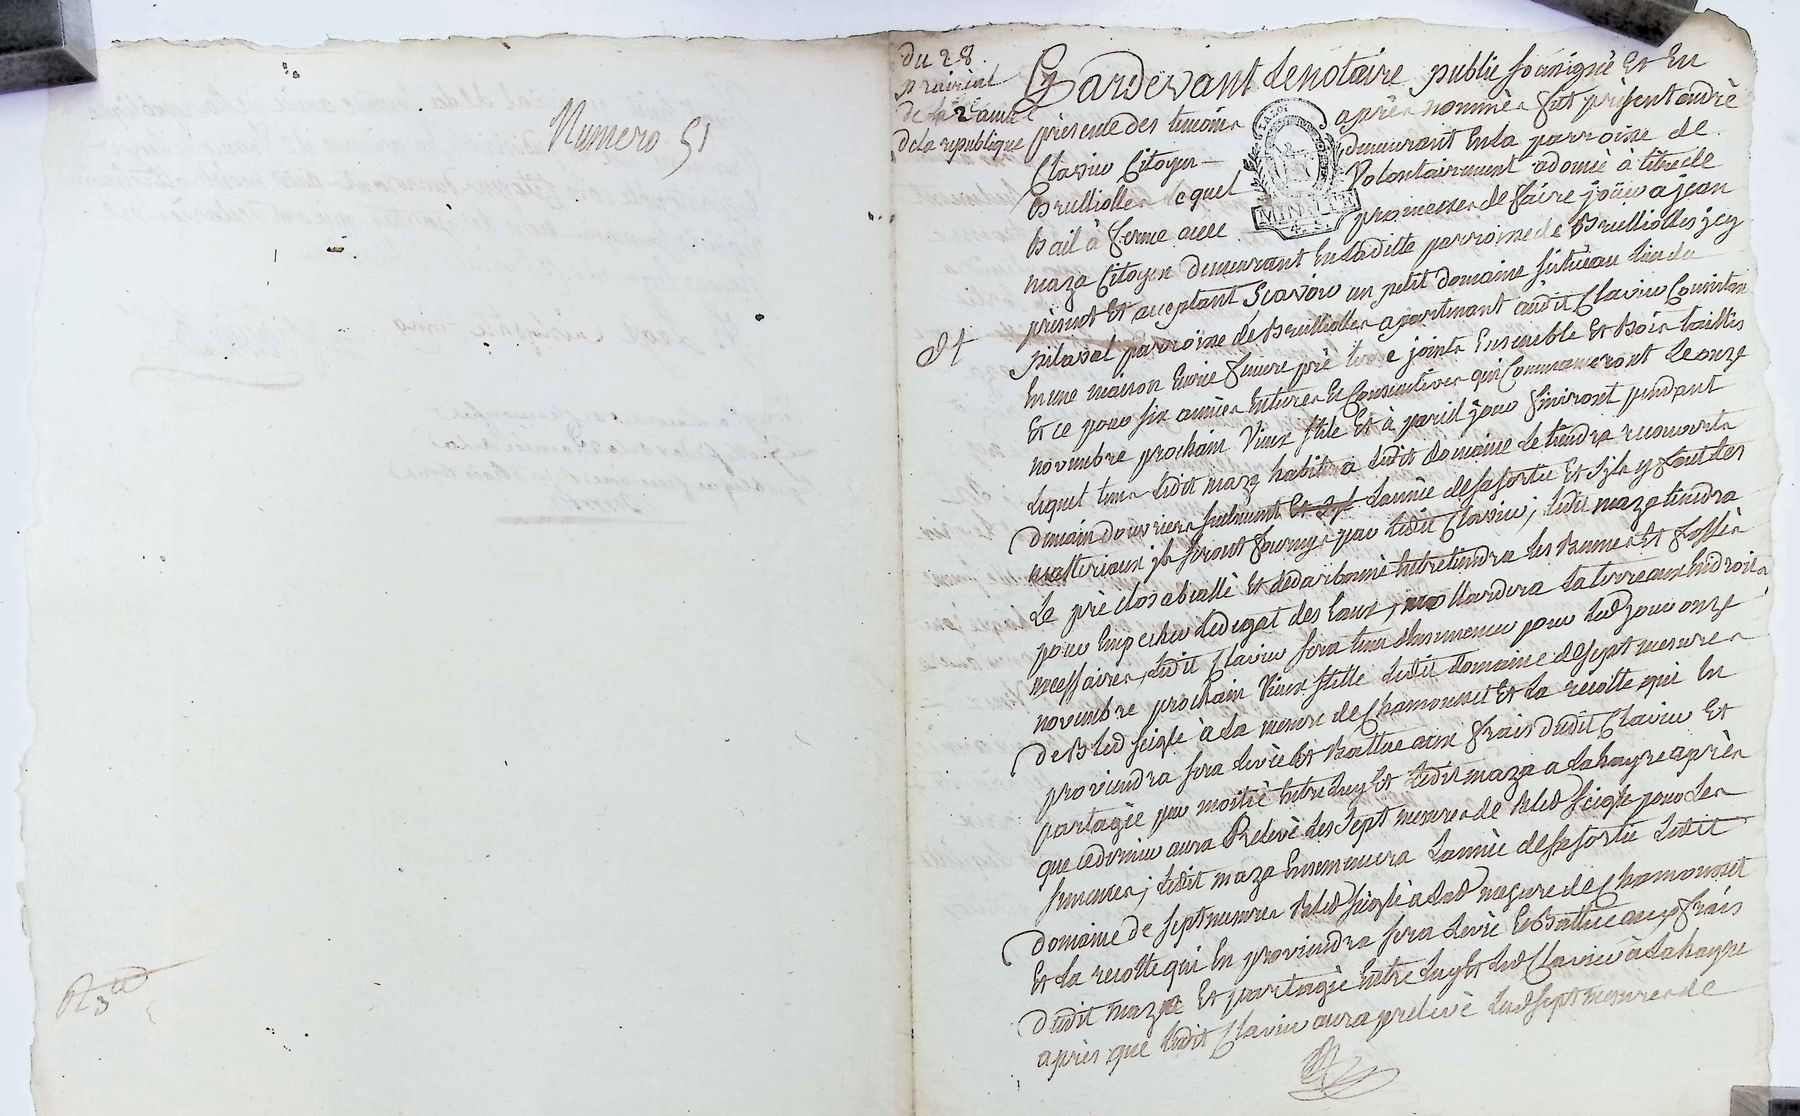 Numero 51
du 28.
prairial
de la 2e année
de la republique
Pardevant le notaire public soussigné Et En
presence des temoins aprés nommés fut présent andré
Clavier Citoyen demeurant En la parroisse de
Brullioles lequel Volontairement a donné à titre de
bail à ferme avec promesses de faire jouir a jean
maza Citoyen demeurant En la ditte parroisse de Brullioles jcy
présent Et acceptant Scavoir un petit domaine situé au lieu de
pilaval parroisse de Brullioles apartenant audit Clavier Consistan
En une maison Ecurie feniere pré terre joints Ensemble Et Bois taillis
Et ce pour six années Entieres Et Consecutives qui Commanceront le onze
novembre prochain Vieux stile Et à pareil jour finiront pendant
lequel tems ledit maza habitera ledit domaine le tiendra recouvert
de main d'ouvriers seulement Et sil l'année de sa sortie Et s'il y faut des
matteriaux jls seront fournys par ledit Clavier; ledit maza tiendra
le pré clos Entretiendra les Et fossés
pour Empecher le degat des Eaux, la terre aux Endroits
necessaires, ledit Clavier sera tenu d'Ensemencer pour led jour onze
novembre prochain Vieux stille ledit domaine de sept mesures
de Bled seigle à la mesure de Chamousset Et la recolte qui En
proviendra sera levée Et Battue aux frais dudit Clavier Et
partagée par moitié Entre luy Et ledit maza a la hayre aprés
que ce dernier aura Prelevé les sept mesures de bled seigle pour les
semences; ledit maza Ensemencera l'année de sa sortie ledit
domaine de sept mesures bled seigle a lad mesure de Chamousset
Et la recolte qui En proviendra sera levée Et Battue aux frais
dudit maza Et partagée Entre luy Et led Clavier à la hayre
aprés que ledit Clavier aura prelevé lesd sept mesures de
MINUTE